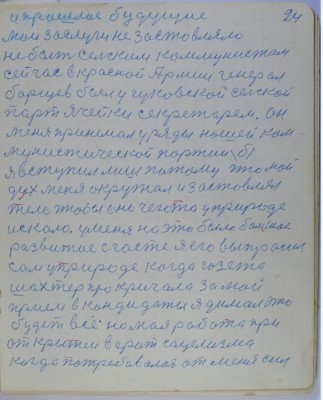 и прошлое будущие 24
мои заслуги не заставляло
не быть селским коммунистам
сейчас в красной Армии генерал
борщев был у гуковской селской
парт ячейки секретарем. он
меня принемал у ряды нашей ком-
мунистической партии, б)
я вступил лиш потому што мой
дух меня окружал и заставлял
тело штобы оно чегото у природе
искало. уменя на это было большое
развитие счасте я его выпросил
сам у природе когда газета
шахтер прокричала за мой
прием в кандидаты я думал это
будет всё но моя работа при
открытии ворот сацелизма
когда потребавалас от меня сил